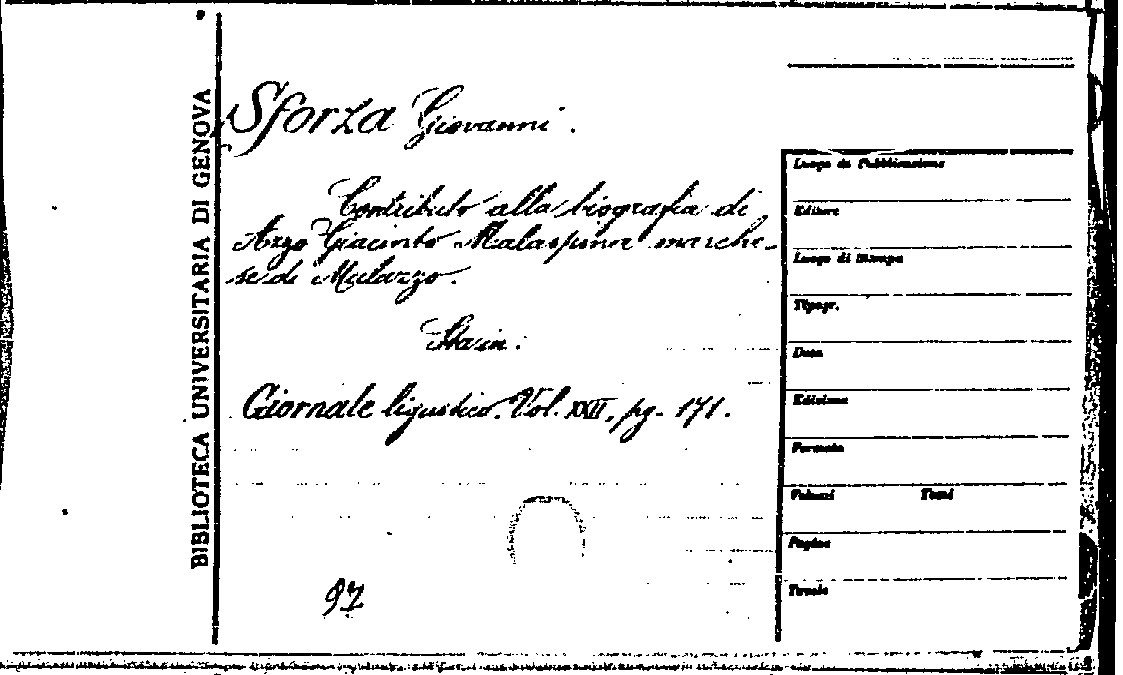 BIBLIOTECA UNIVERSITARIA DI GENOVA
Sforza Giovanni.
Contributo alla biografia di
Azzo Giacinto Malaspina marche-
se di Mulazzo.
Giornale ligustico. Vol. XXII, pg. 171.
97
Luogo di Pubblicazione
Editore
Luogo di Stampa
Tipogr.
Data
Edizione
Formato
Volumi Tomi
Pagine